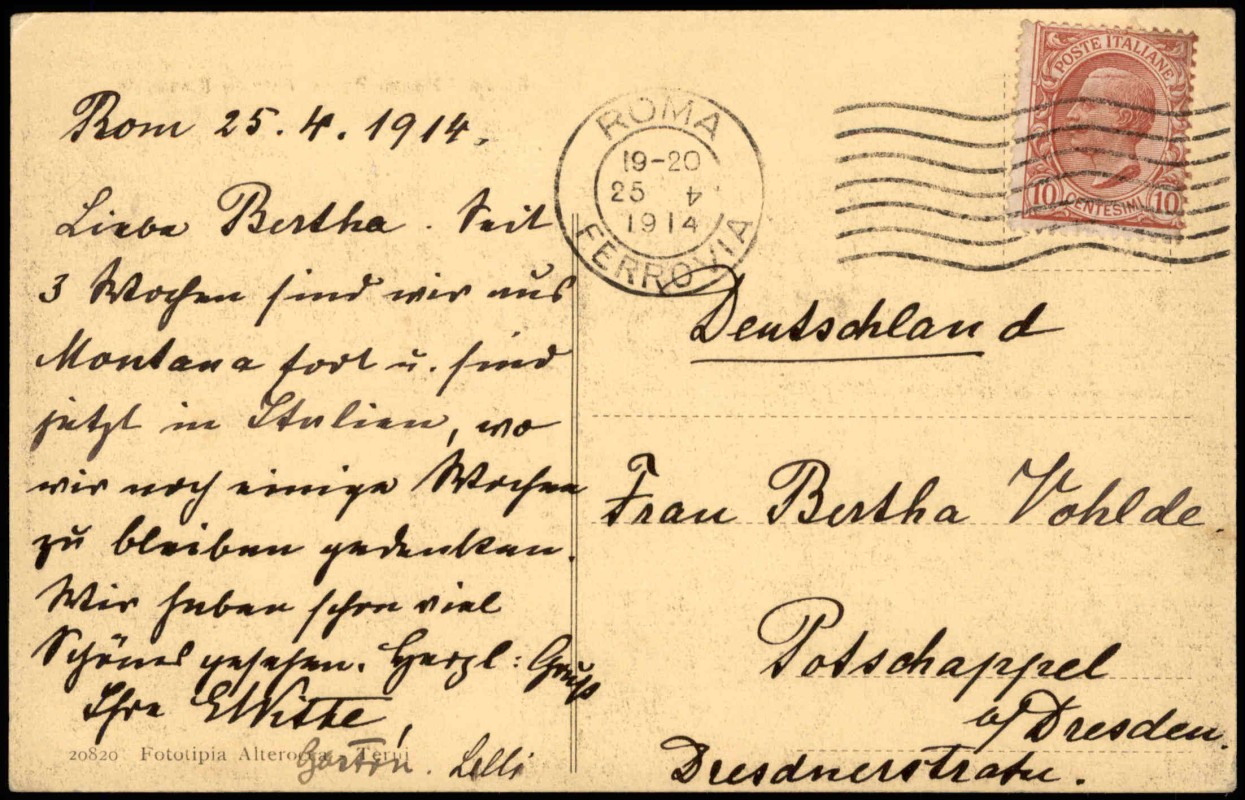 Rom 25. 4. 1914.
Liebe Bertha. Seit
3 Wochen sind wir aus
Montana fort u. sind
jetzt in Italien, wo
wir noch einige Wochen
zu bleiben gedenken.
Wir haben schon viel
Schönes gesehen. Herzl: Gruß
Ihre EWitte,
Lilli
20820 Fototipia Alterocca Terni
ROMA
19-20
25 4
1914
FERROVIA
POSTE ITALIANE
10 CENTESIMI 10
Deutschland
Frau Bertha Vohlde.
Potschappel
b/Dresden.
Dresdnerstraße.